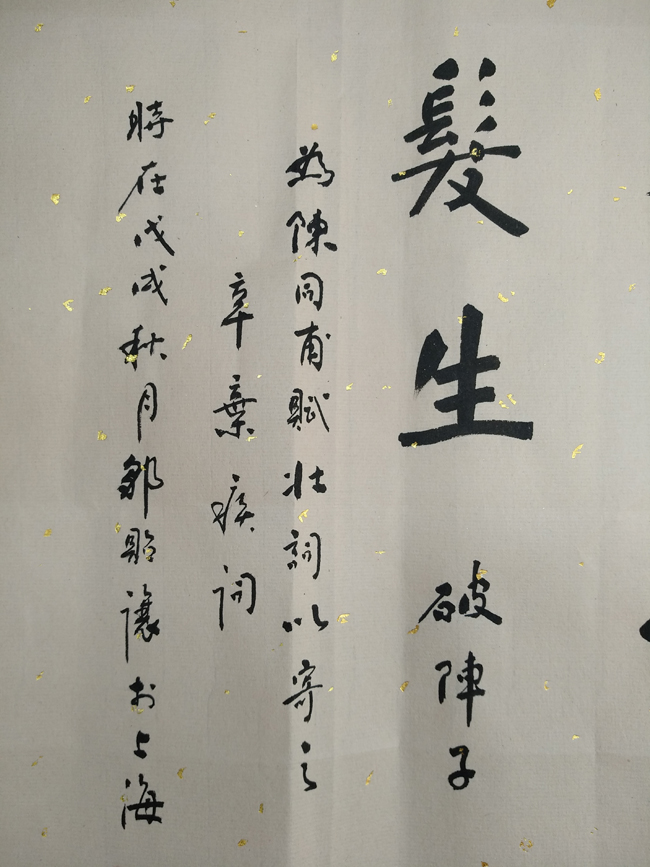 髮生 破陣子
為陳同甫賦壯詞以寄之
辛棄疾詞
時在戊戌秋月鄒貽讓於上海